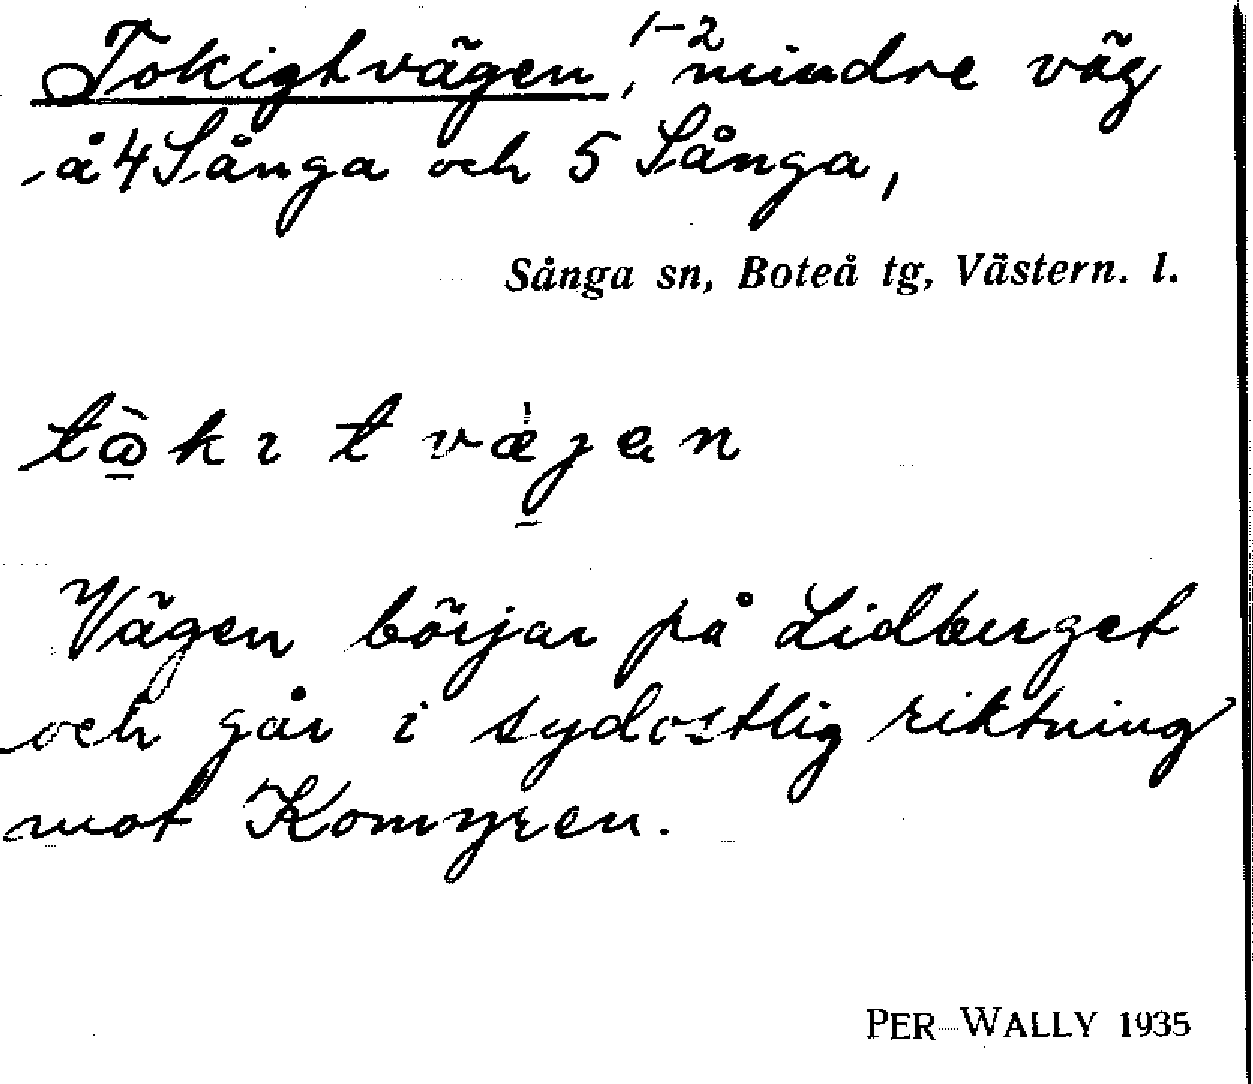 Tokigtvägen, 1-2 mindre väg
å 4 Sånga och 5 Sånga,
Sånga sn, Boteå tg, Västern. l.
tὼ̲kıt væ̲̍jen
Vägen börjar på Lidberget
och går i sydostlig riktning
mot Komyren.
PER WALLY 1935